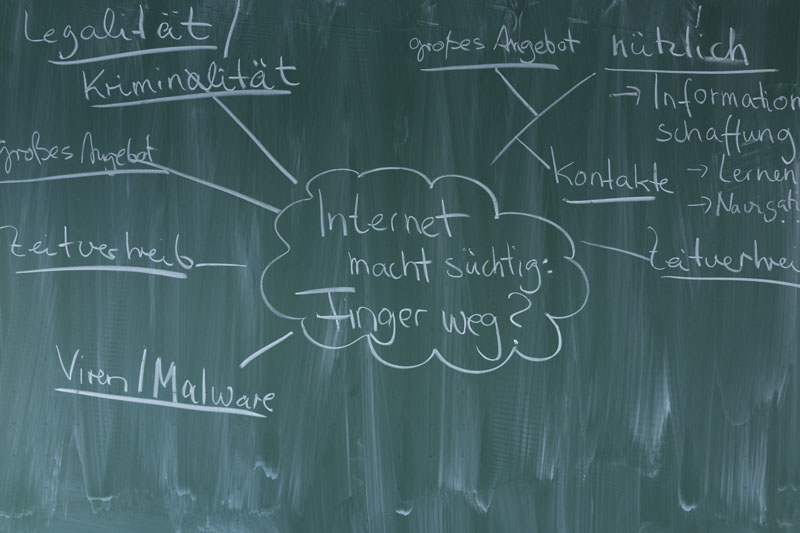 Legalität
Kriminalität
großes Angebot
Zeitvertreib
Viren/Malware
Internet
macht süchtig:
Finger weg?
großes Angebot
nützlich
→ Information
schaffung
→ Lernen
→ Navigati
Kontakte
Zeitvertrei